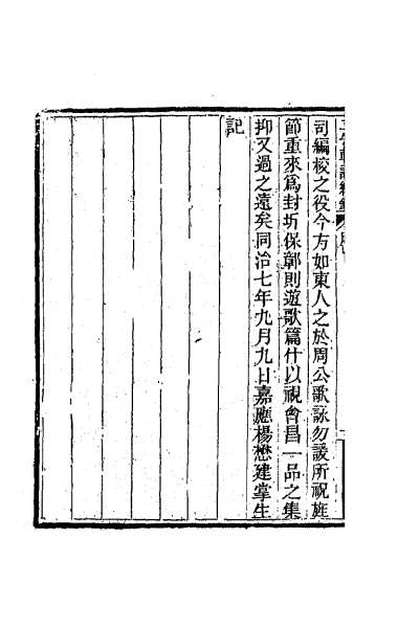 司編校之役今方如東人之於周公歌詠勿諼所祝旌
節重來爲封圻保鄣則遊歌篇什以視會昌一品之集
抑又過之遠矣同治七年九月九日嘉應楊懋建掌生
記